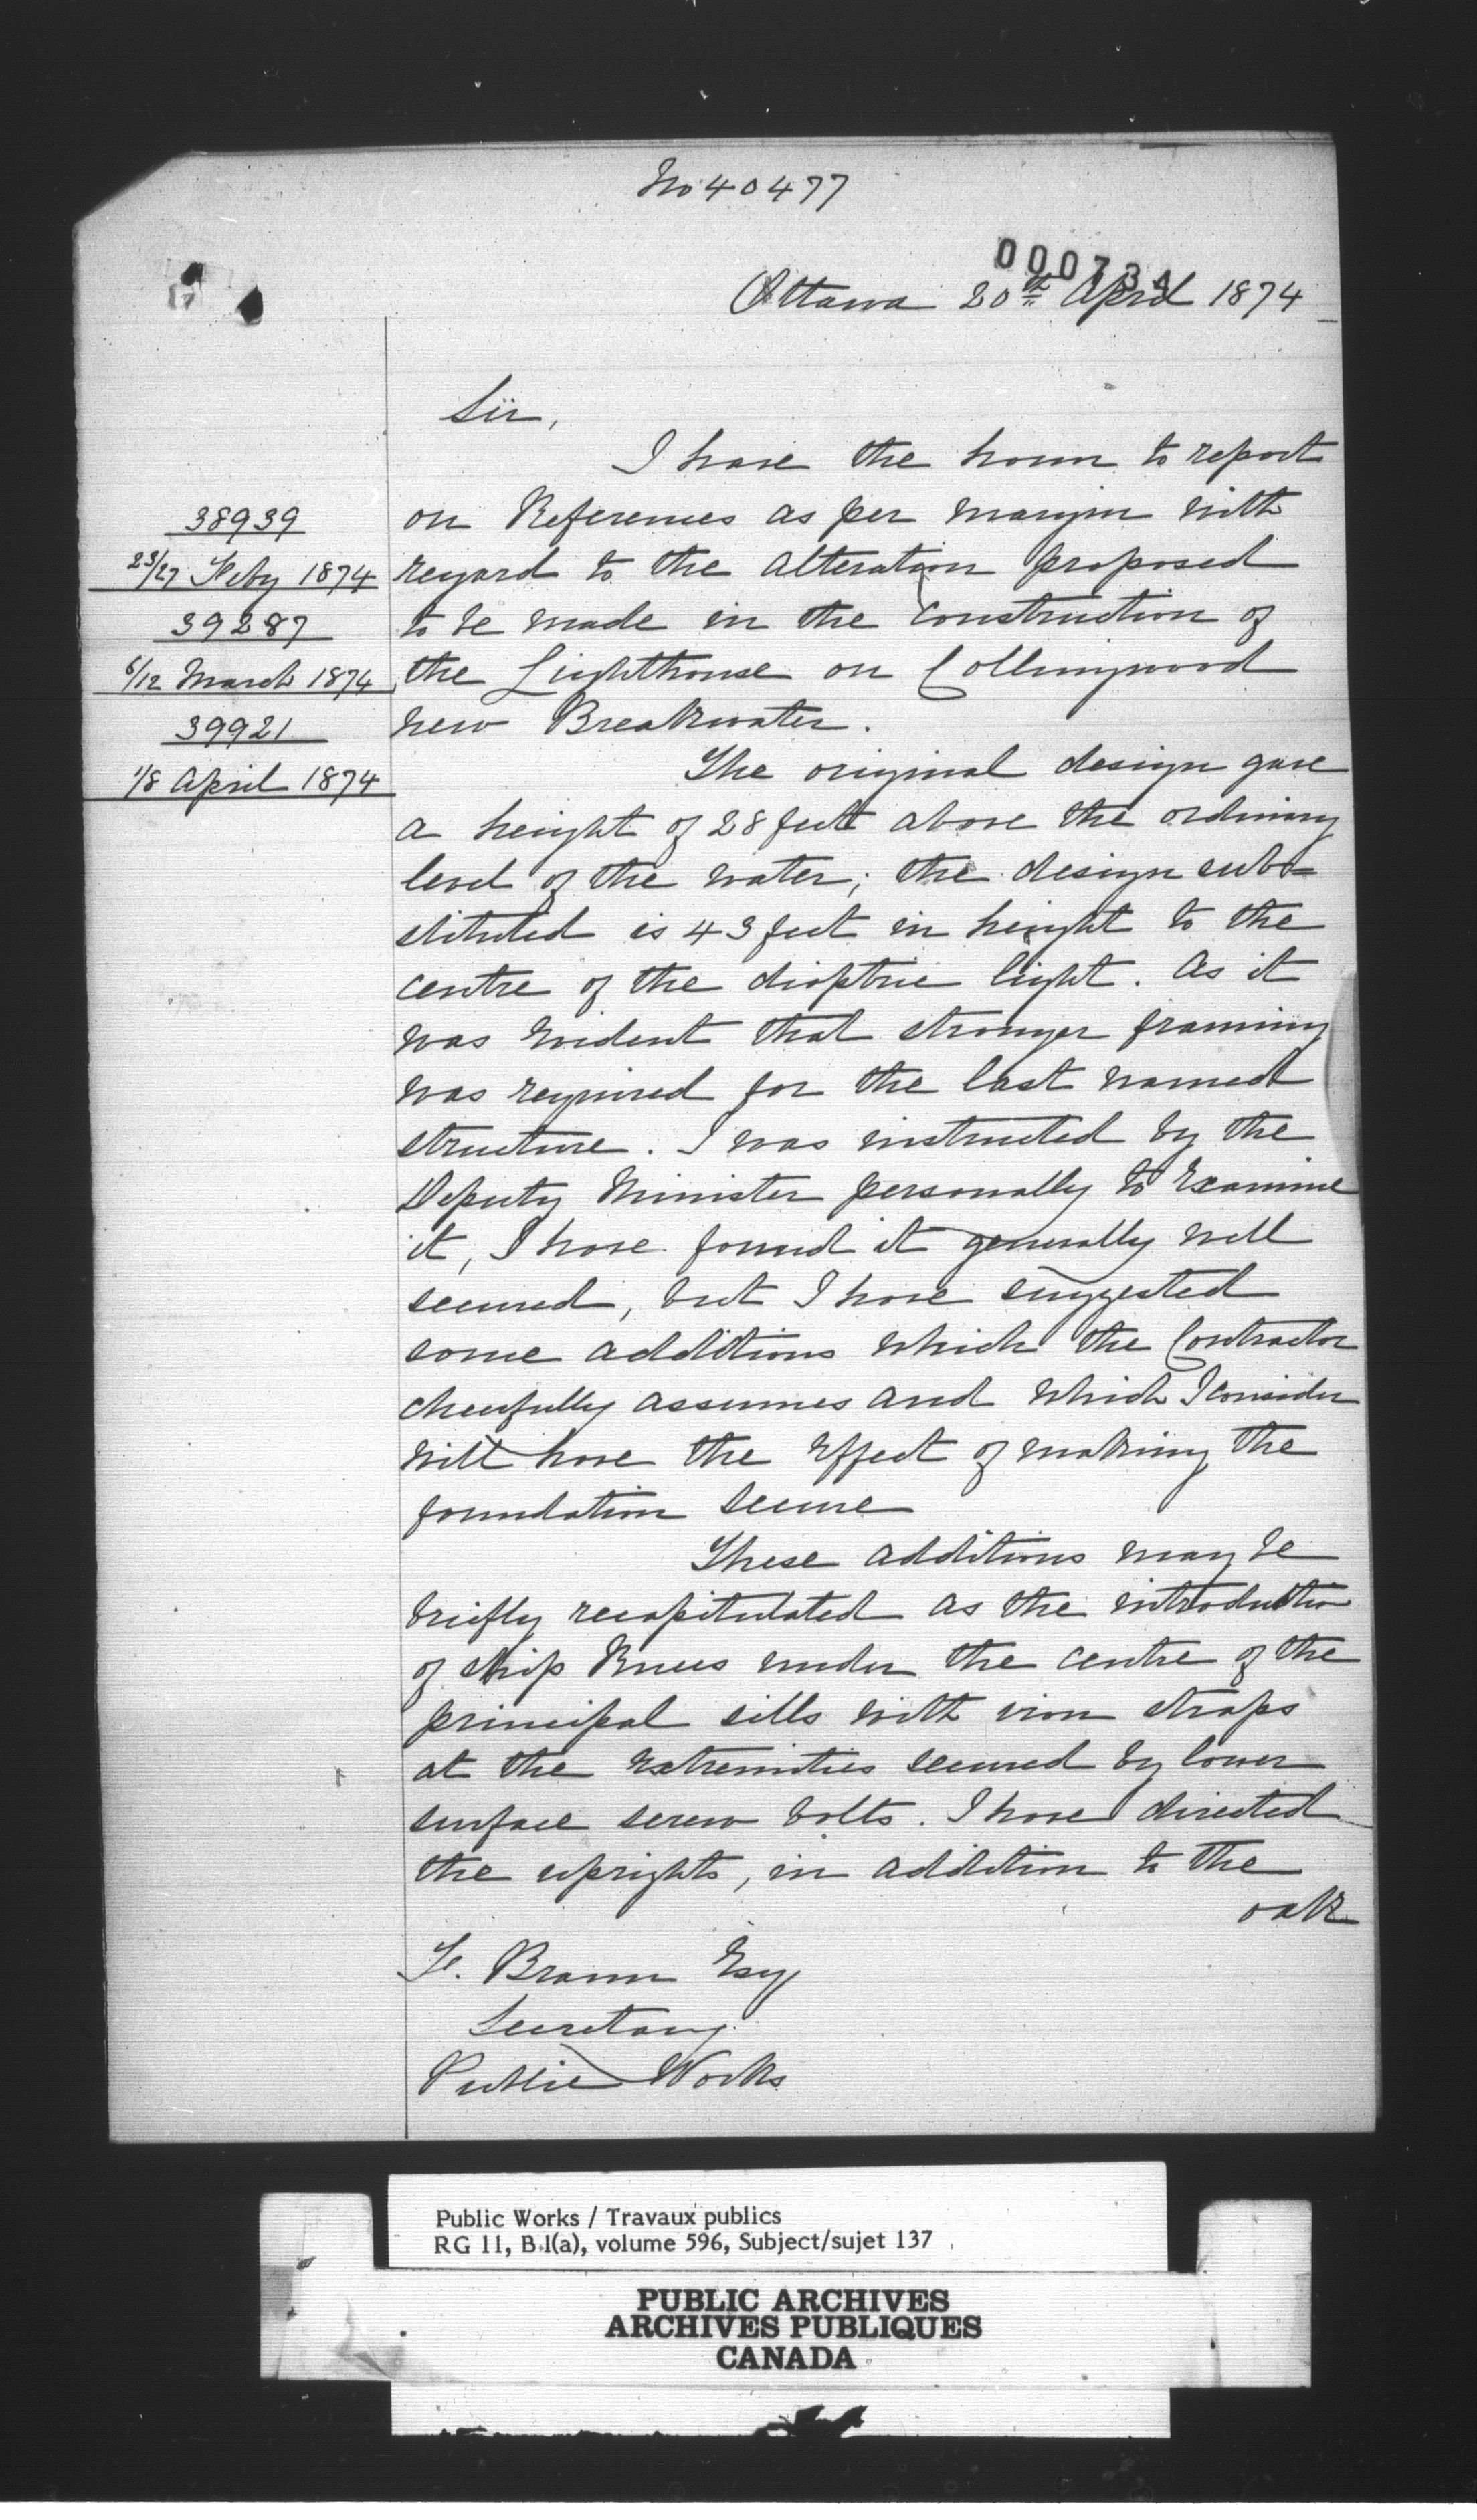 No 40477
Ottawa 20th April 1874
Sir,
I have the honor to report
38939
on References as per margin with
23/27 Feby 1874
regard to the alteration proposed
39287
to be made in the Construction of
6/12 March 1874
the Lighthouse on Collingwood
39921
new Breakwater.
1/8 April 1874
The original design gave
a height of 28 feet above the ordinary
level of the water; the design sub=
stituted is 43 feet in height to the
centre of the dioptric light. As it
was evident that stronger framing
was required for the last named
structure. I was instructed by the
Deputy Minister personally to Examine
it, I have found it generally well
secured, but I have suggested
some additions which the Contractor
cheerfully assumes and which I consider
will have the effect of making the
foundation secure
These additions may be
briefly recapitulated as the introduction
of ship Knees under the centre of the
principal sills with iron straps
at the Extremities secured by lower
surface screw bolts. I have directed
the uprights, in addition to the
oak
F. Braun Esq
Secretary
Public Works
Public Works / Travaux publics
RG 11, B.1(a), volume 596, Subject/sujet 137
PUBLIC ARCHIVES
ARCHIVES PUBLIQUES
CANADA